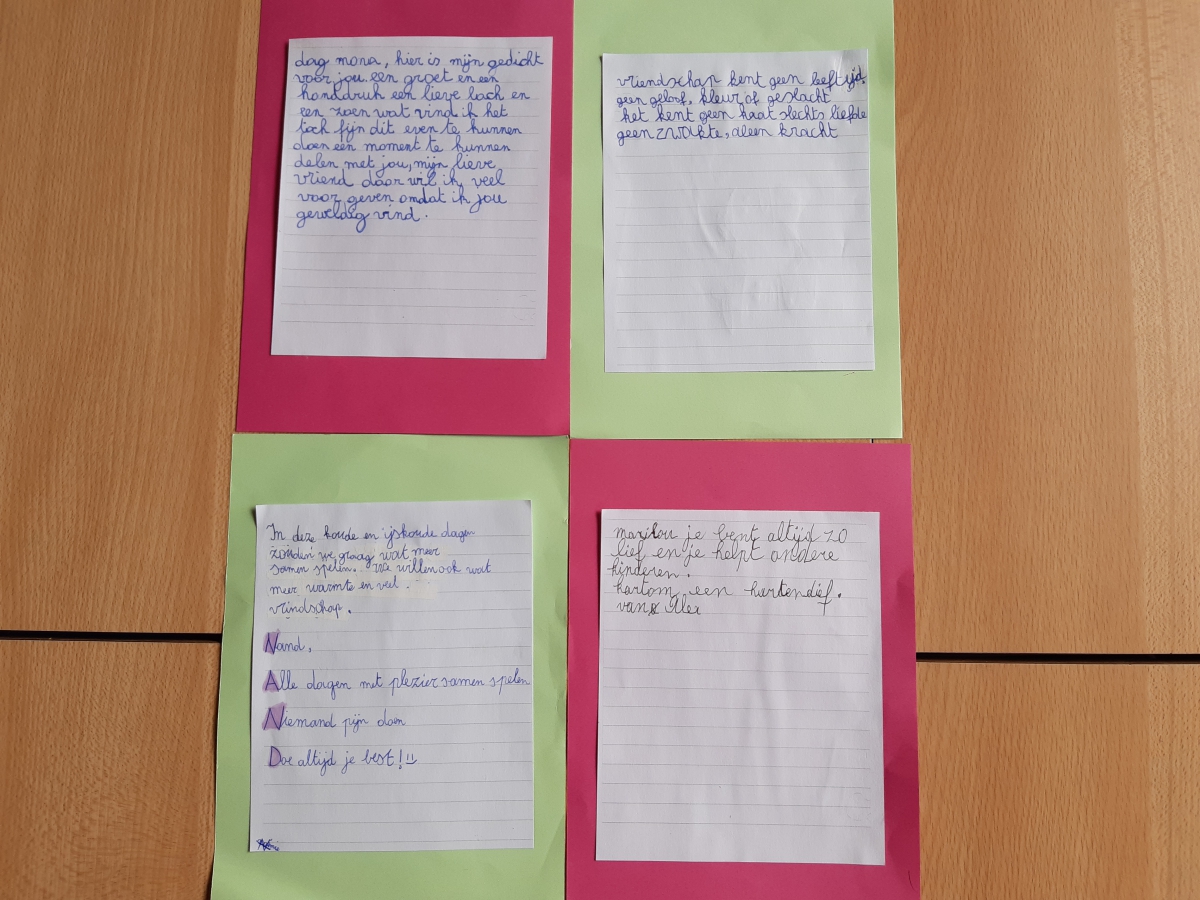 dag mona, hier is mijn gedicht
voor jou een groet en een
handdruk een lieve lach en
een zoen wat vind ik het
toch fijn dit even te kunnen
doen een moment te kunnen
delen met jou, mijn lieve
vriend daar wil ik veel
voor geven omdat ik jou
geweldig vind.
vriendschap kent geen leeftijd.
geen geloof, kleur of geslacht
het kent geen haat slechts liefde
geen zwakte, aleen kracht
In deze koude en ijskoude dagen
zouden we graag wat meer
samen spelen. We willen ook wat
meer warmte en veel
vrindschap.
Nand,
Alle dagen met plezier samen spelen
Niemand pijn doen
Doe altijd je best!
marilou je bent altijd zo
lief en je helpt andere
kinderen.
kortom een hartendief.
van